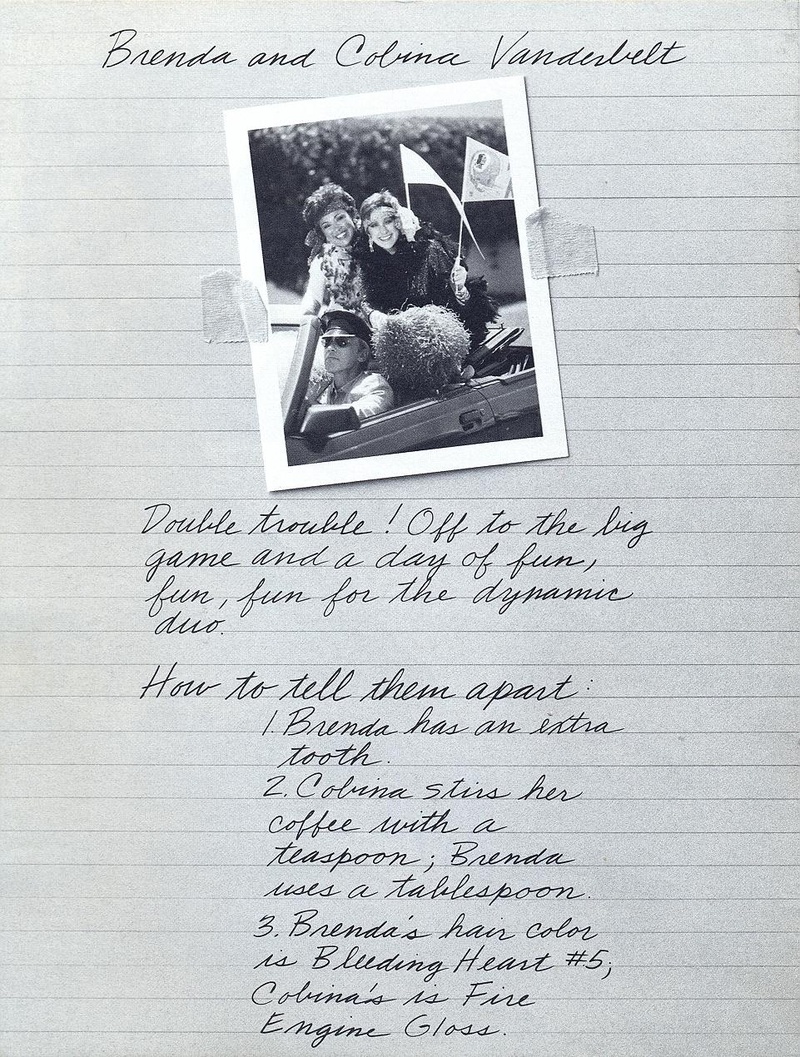 Brenda and Cobina Vanderbelt
Double trouble! Off to the big
game and a day of fun,
fun, fun for the dynamic
duo.
How to tell them apart:
1. Brenda has an extra
tooth.
2. Cobina stirs her
coffee with a
teaspoon; Brenda
uses a tablespoon.
3. Brenda's hair color
is Bleeding Heart #5;
Cobina's is Fire
Engine Gloss.